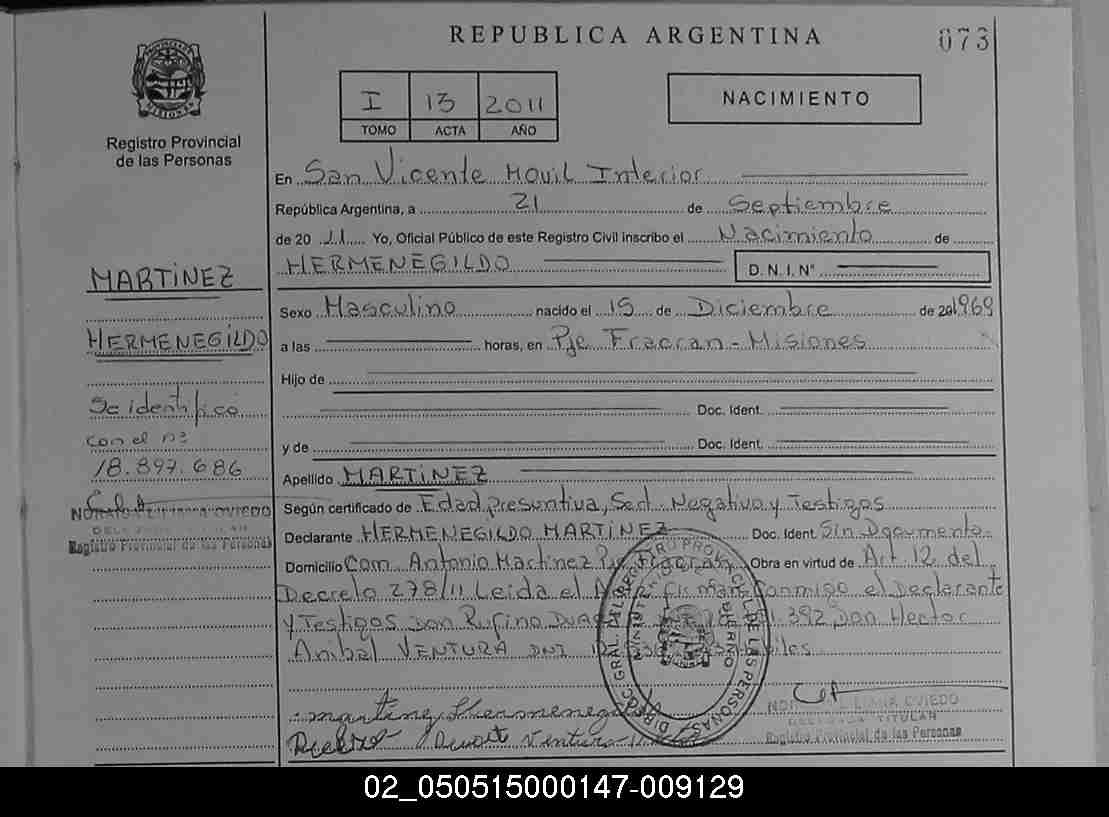 REPUBLICA ARGENTINA
073
PROVINCIA DE MISIONES
Registro Provincial
de las Personas
I 13 2011
TOMO ACTA AÑO
NACIMIENTO
En San Vicente Movil Interior
República Argentina, a 21 de Septiembre
de 20 11 Yo, Oficial Público de este Registro Civil inscribo el Nacimiento de
HERMENEGILDO D.N.I.Nº
Sexo Masculino nacido el 15 de Diciembre de 201969
a las horas, en Pje Fracran - Misiones
Hijo de
Doc. Ident.
y de Doc. Ident.
Apellido MARTINEZ
Según certificado de Edad presuntiva, Sert. Negativo y Testigos
Declarante HERMENEGILDO MARTINEZ Doc. Ident. Sin Documento
Domicilio Com. Antonio Martinez Obra en virtud de Art. 12 del
Decreto 278/11 Leida el firman Conmigo el Declarante
y Testigos Don Rufino 392 Don Hector
Anibal VENTURA DNI
MARTINEZ
HERMENEGILDO
Se identifico
con el nº
18.897.686
OVIEDO
TITULAR
Registro Provincial de las Personas
DIREC. GRAL. DEL REGISTRO PROVINCIAL DE LAS PERSONAS
LILIANA OVIEDO
DELEGADA TITULAR
Registro Provincial de las Personas
02_050515000147-009129